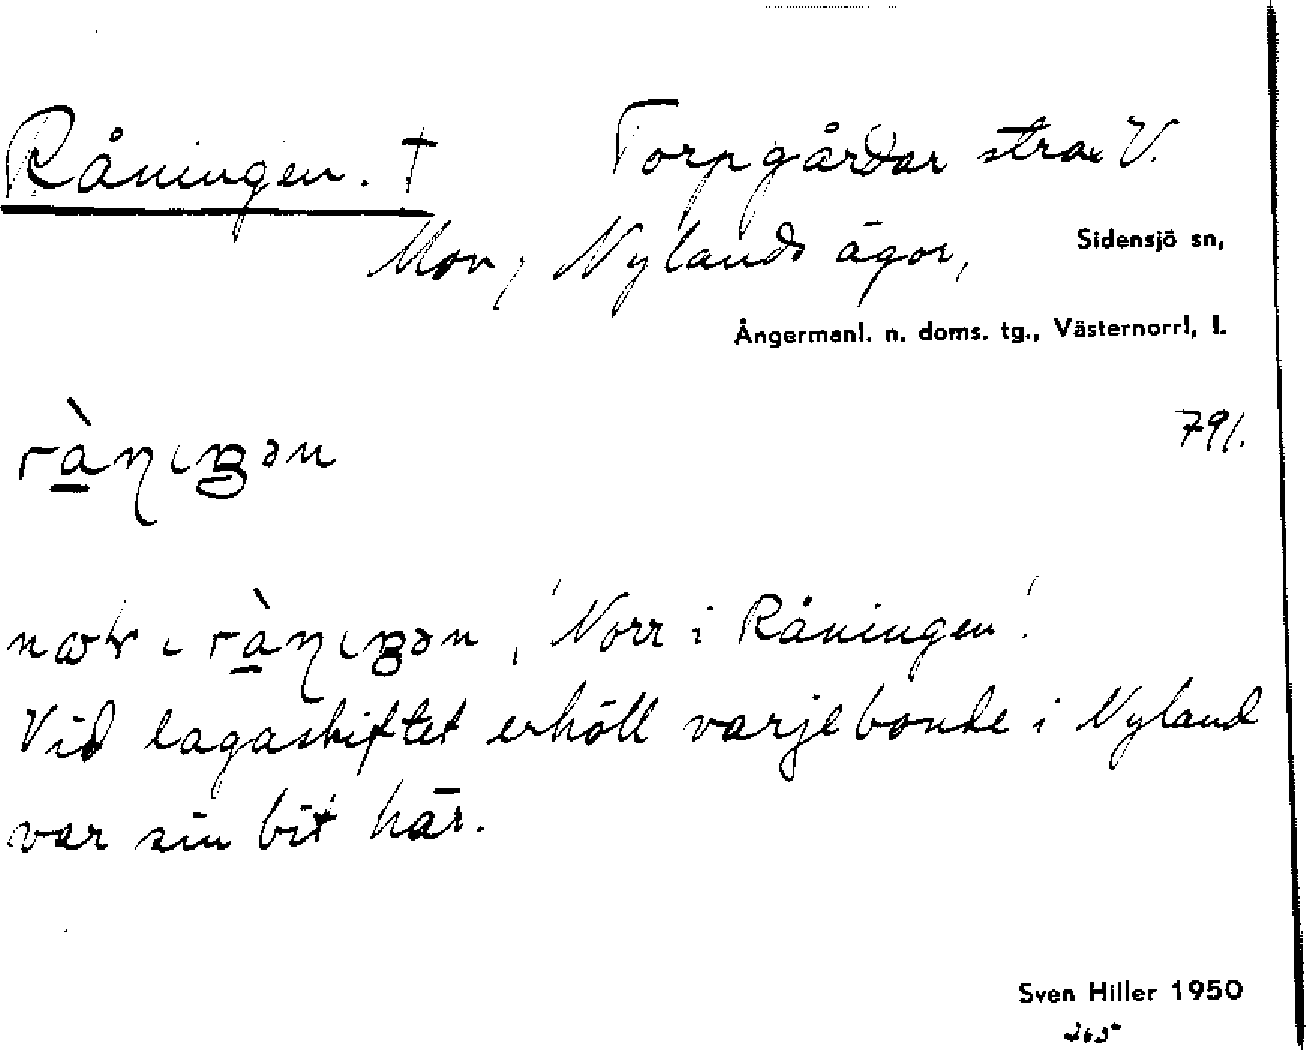 Råningen. † Torpgårdar strax V.
Mon, Nylands ägor, Sidensjö sn,
Ångermanl. n. doms. tg., Västernorrl. l.
79/.
'Norr i Råningen'.
Vid lagaskiftet erhöll varje bonde i Nyland
var sin bit här.
Sven Hiller 1950